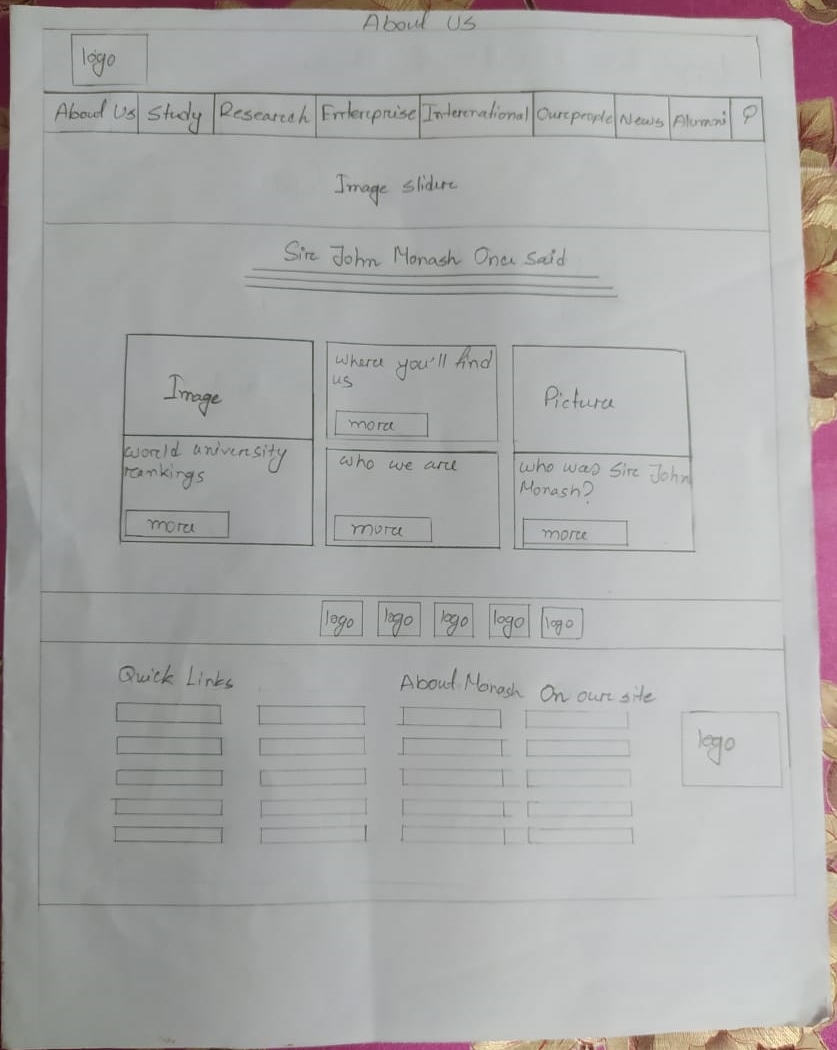 About Us
logo
About Us Study Research Enterprise International Our people News Alumni
Image slider
Sir John Monash Once said
Image
world university
rankings
more
where you'll find
us
more
who we are
more
Picture
who was Sir John
Monash?
more
logo logo logo logo logo
Quick Links
About Monash
On our site
logo